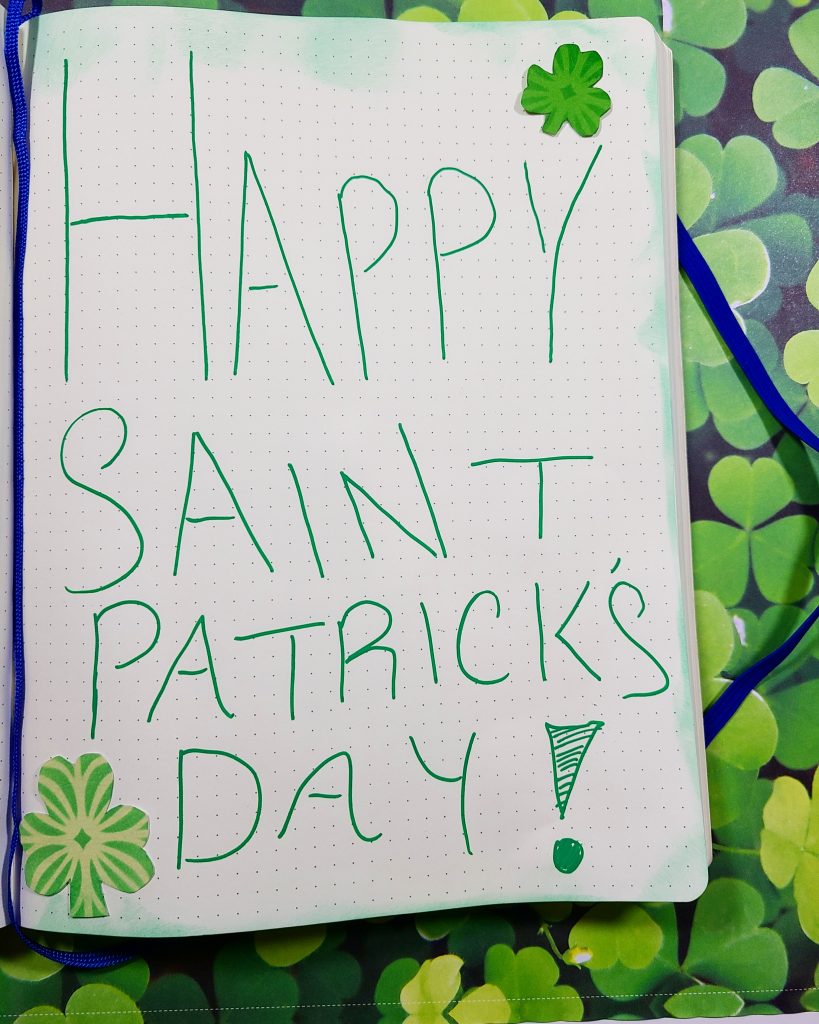 HAPPY
SAINT
PATRICK'S
DAY!